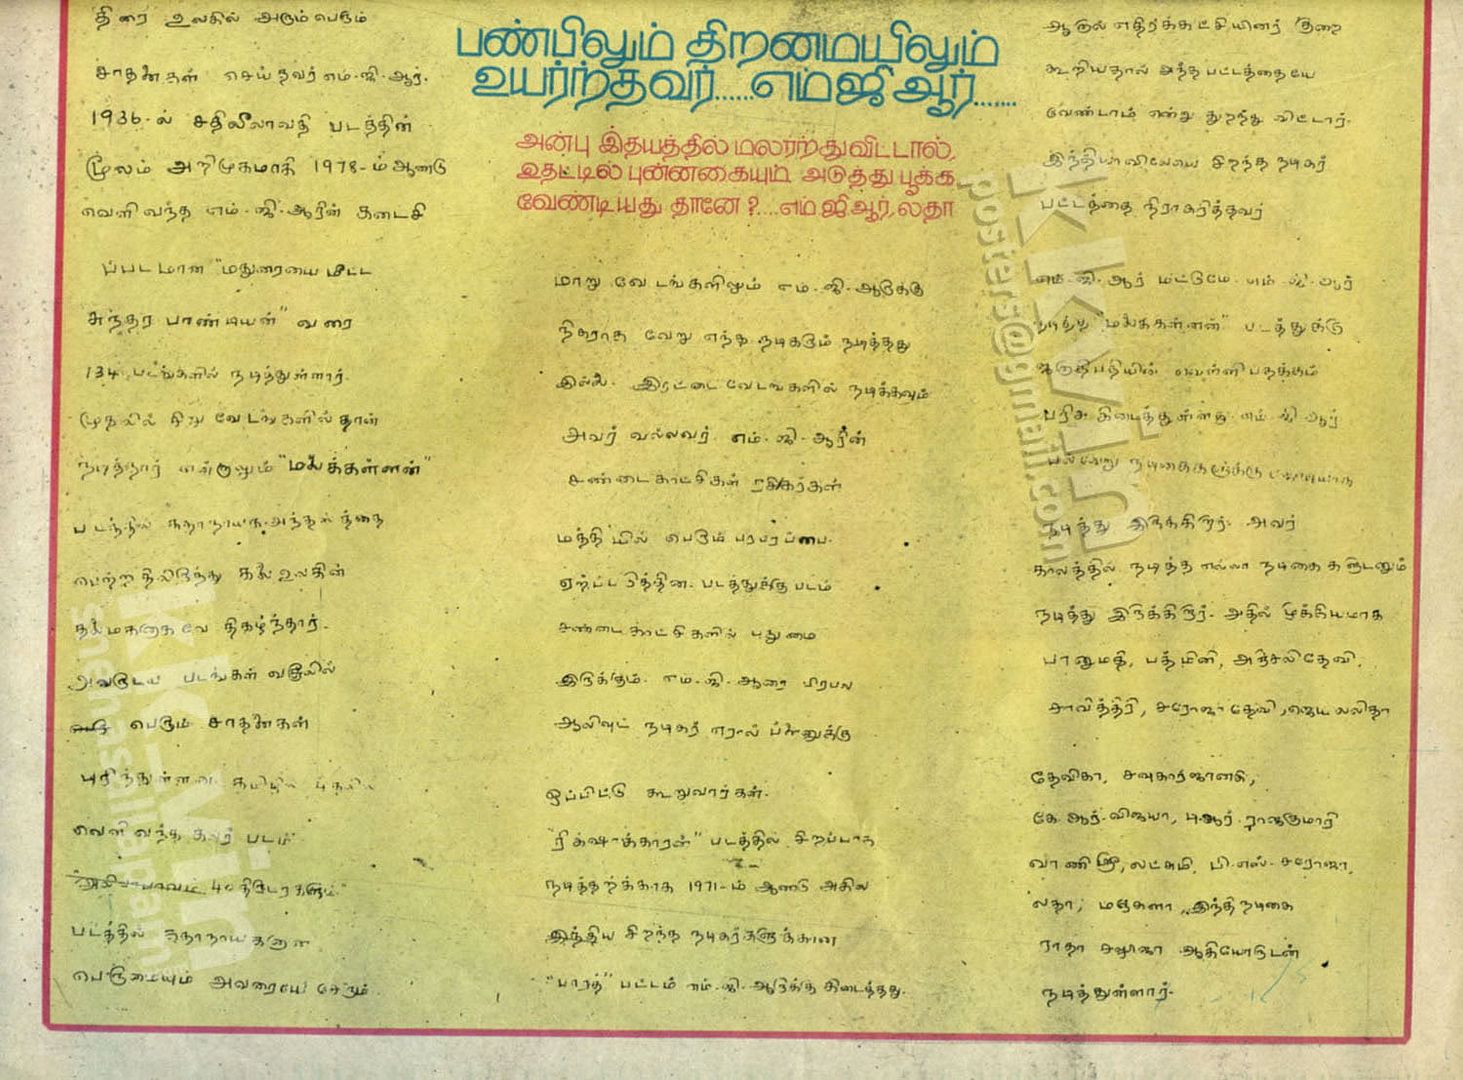 பண்பிலும் திறமையிலும்
உயர்ந்தவர்......எம்ஜிஆர்.......
அன்பு இதயத்தில் மலர்ந்துவிட்டால்,
உதட்டில் புன்னகையும் அடுத்து பூக்க
வேண்டியது தானே?....எம்ஜிஆர், லதா
திரை உலகில் அரும் பெரும்
சாதனைகள் செய்தவர் எம்.ஜி.ஆர்.
1936-ல் சதிலீலாவதி படத்தின்
மூலம் அறிமுகமாகி 1978-ம் ஆண்டு
வெளிவந்த எம்.ஜி.ஆரின் கடைசி
படமான "மதுரையை மீட்ட
சுந்தர பாண்டியன்" வரை
134 படங்களில் நடித்துள்ளார்.
முதலில் சிறு வேடங்களில் தான்
நடித்தார் என்றாலும் "மலைக்கள்ளன்"
படத்தில் கதாநாயக அந்தஸ்த்தை
பெற்றதிலிருந்து கலை உலகின்
திகழ்ந்தார்.
அவருடைய படங்கள் வசூலில்
பெரும் சாதனைகள்
தமிழில் முதலில்
வெளிவந்த கலர் படம்
"அலிபாபாவும் 40 திருடர்களும்"
படத்தில் கதாநாயகனான
பெருமையும் அவரையே சேரும்.
மாறு வேடங்களிலும் எம்.ஜி.ஆருக்கு
நிகராக வேறு எந்த நடிகரும் நடித்தது
இல்லை. இரட்டை வேடங்களில் நடிக்கவும்
அவர் வல்லவர். எம்.ஜி.ஆரின்
சண்டை காட்சிகள் ரசிகர்கள்
மத்தியில் பெரும் பரபரப்பை
ஏற்ப்படுத்தின. படத்துக்கு படம்
சண்டை காட்சிகளில் புதுமை
இருக்கும். எம்.ஜி.ஆரை பிரபல
ஆலிவுட் நடிகர் எரால் பிளனுக்கு
ஒப்பிட்டு கூறுவார்கள்.
"ரிக்ஷாக்காரன்" படத்தில் சிறப்பாக
நடித்தற்க்காக 1971-ம் ஆண்டு அகில
இந்திய சிறந்த நடிகர்களுக்கான
"பாரத்" பட்டம் எம்.ஜி.ஆருக்கு கிடைத்தது.
ஆனால் எதிர்க்கட்சியினர் குறை
கூறியதால் அந்த பட்டத்தையே
வேண்டாம் என்று துறந்து விட்டார்.
இந்தியாவிலேயே சிறந்த நடிகர்
பட்டத்தை நிராகரித்தவர்
எம்.ஜி.ஆர் மட்டுமே. எம்.ஜி.ஆர்
நடித்த "மலைகள்ளன்" படத்துக்கு
ஜனாதிபதியின் வெள்ளி பதக்கம்
பரிசு கிடைத்துள்ளது. எம்.ஜி.ஆர்
பல்வேறு நடிகைகளுக்கு ஜோடியாக
நடித்து இருக்கிறார். அவர்
காலத்தில் நடித்த எல்லா நடிகைகளுடனும்
நடித்து இருக்கிறார். அதில் முக்கியமாக
பானுமதி, பத்மினி, அஞ்சலிதேவி,
சாவித்திரி, சரோஜா தேவி, ஜெயலலிதா
தேவிகா, சவுகார்ஜானகி,
கே.ஆர்.விஜயா, டி.ஆர்.ராஜகுமாரி
வாணிஸ்ரீ, லட்சுமி, பி.எஸ்.சரோஜா,
லதா, மஞ்சுளா, இந்தி நடிகை
ராதா சலூஜா ஆகியோருடன்
நடித்துள்ளார்.
kkvin
posters@gmail.com
kk-vin
Snehasallapam